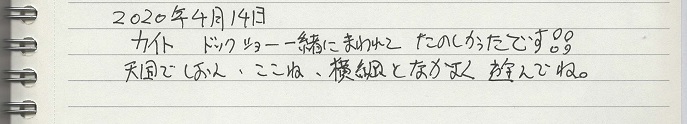 2020年4月14日
カイト ドックショー一緒にまわれて たのしかったです!!
天国でしおん、ここね、横綱となかよく 遊んでね。